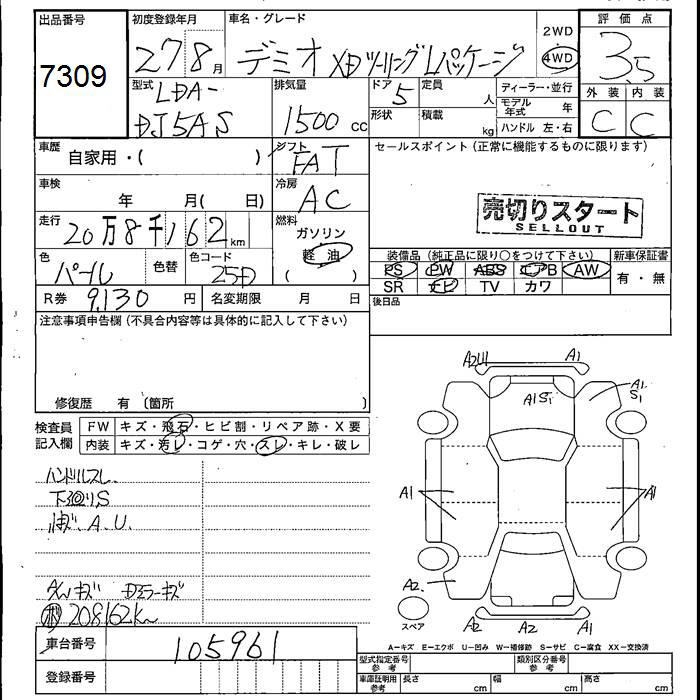 出品番号
7309
初度登録年月
27 8 月
車名・グレード
デミオ XDツーリングLパッケージ
2WD
4WD
評価点
3.5
外装 内装
C C
型式
LDA-
DJ5AS
排気量
1500 cc
ドア
5
形状
定員
人
積載
kg
ディーラー・並行
モデル年式 年
ハンドル 左・右
車歴
自家用・( )
シフト
FAT
車検
年 月( 日)
冷房
AC
走行
20万8千162km
燃料
ガソリン
軽油
色
パール
色替
色コード
25D
R券 9,130 円
名変期限 月 日
セールスポイント (正常に機能するものに限ります)
売切りスタート
SELLOUT
装備品 (純正品に限り○をつけて下さい)
PS PW ABS エアB AW
SR ナビ TV カワ
新車保証書
有・無
後日品
注意事項申告欄 (不具合内容等は具体的に記入して下さい)
修復歴 有 〔箇所 〕
検査員記入欄
FW キズ・飛石・ヒビ割・リペア跡・X要
内装 キズ・汚レ・コゲ・穴・スレ・キレ・破レ
ハンドルスレ
下廻りS
A.U.
キズ Dミラーキズ
208162km
A2 A1
A1 S1
A1
S1
A1 A1
A2
A2 A2 A1
スペア
A−キズ E−エクボ U−凹み W−補修跡 S−サビ C−腐食 XX−交換済
車台番号
105961
登録番号
型式指定番号 参考
類別区分番号 参考
車庫証明用 参考
長さ cm 幅 cm 高 cm